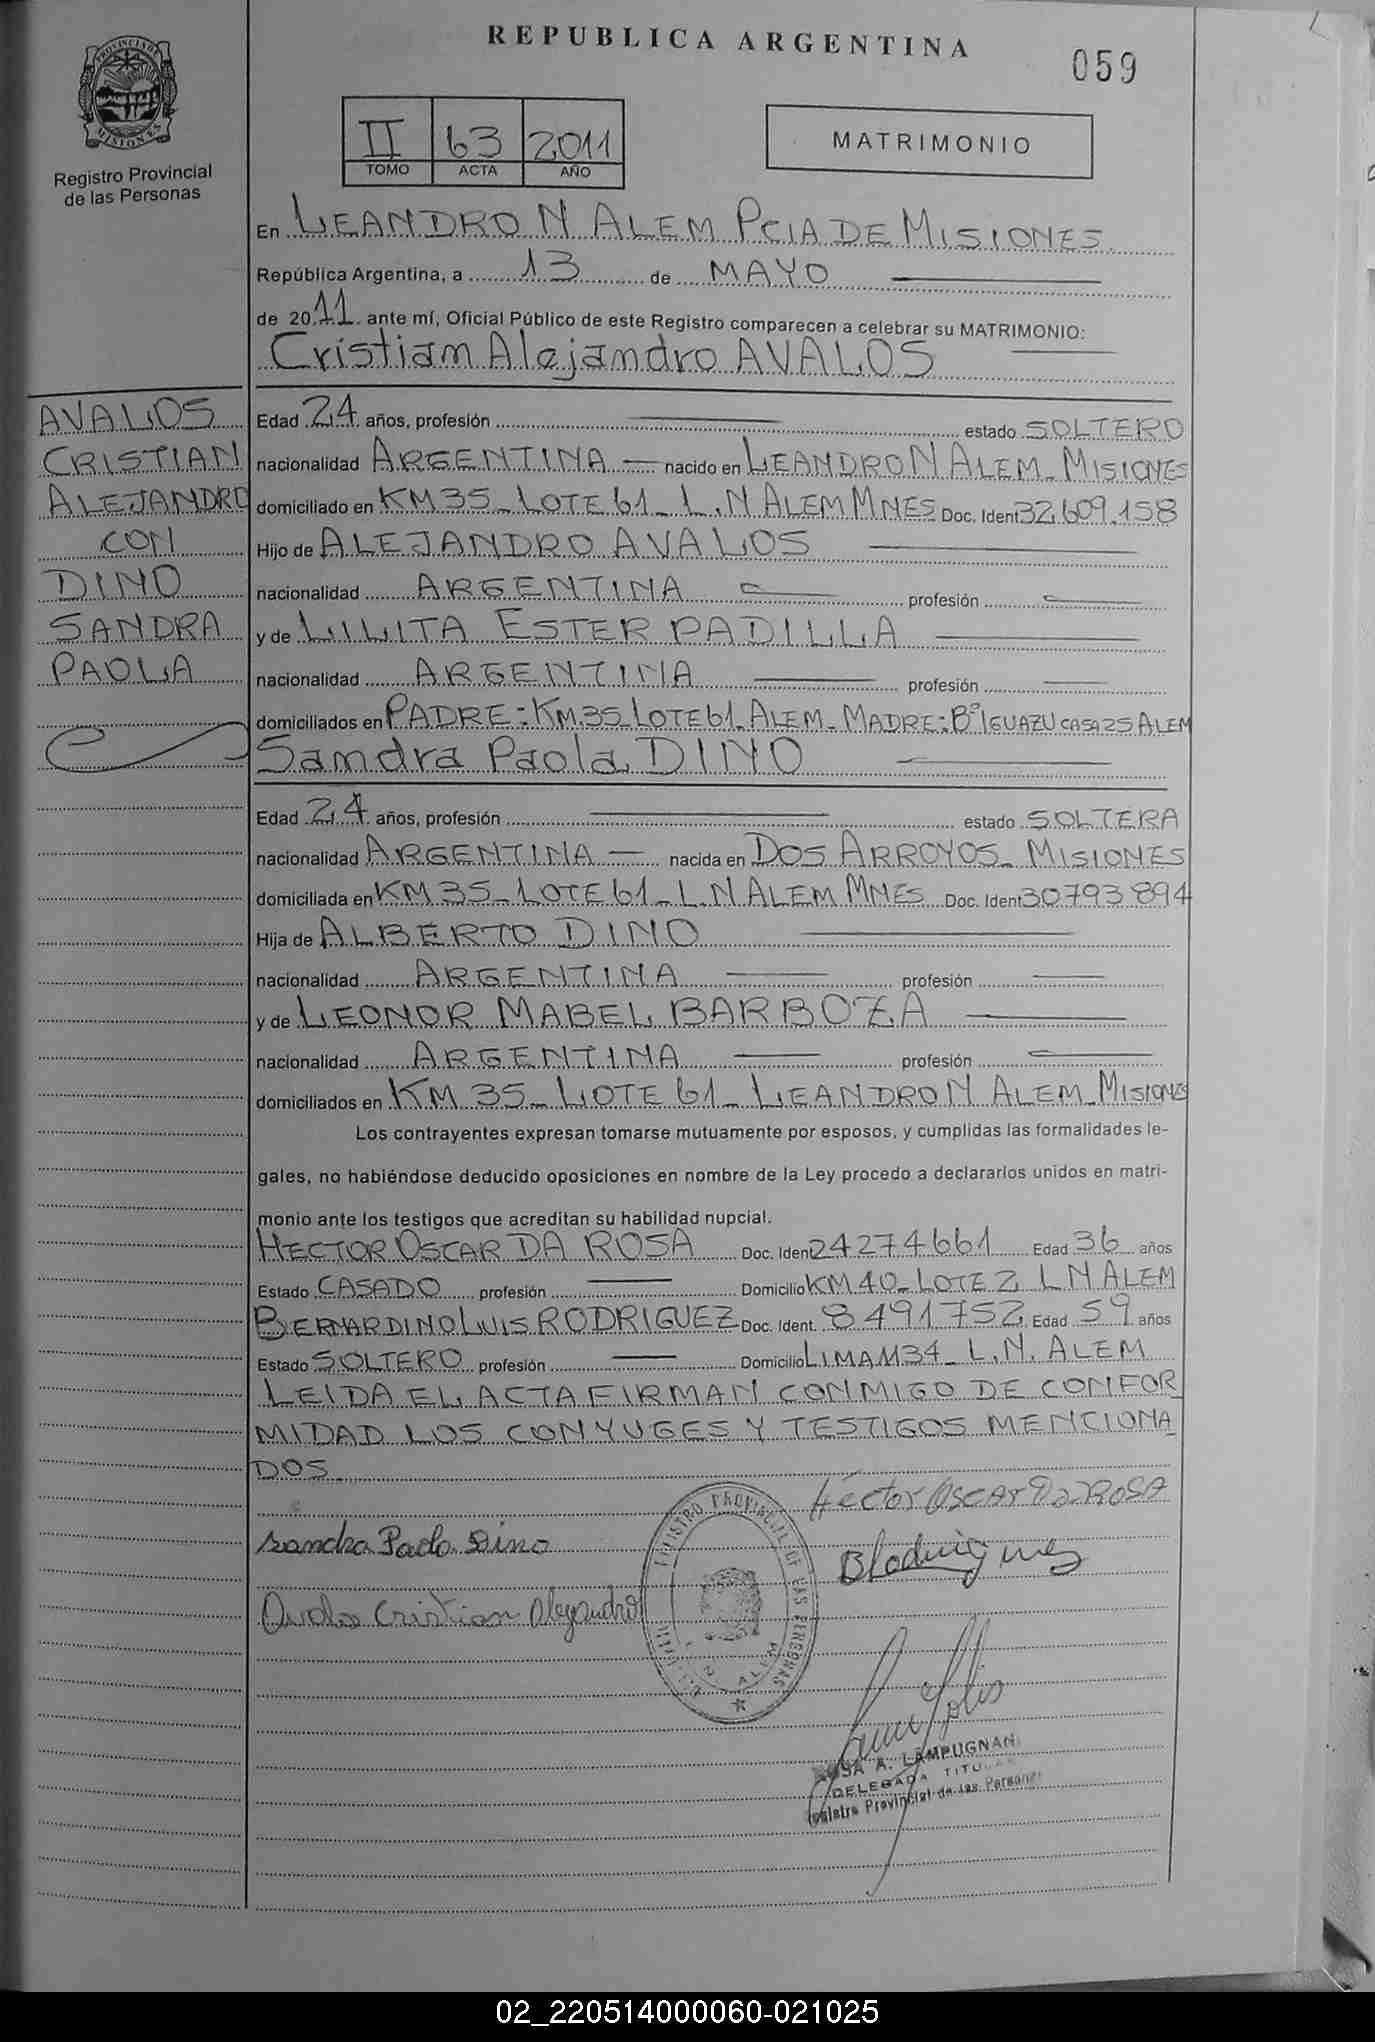 REPUBLICA ARGENTINA
059
PROVINCIA DE
MISIONES
Registro Provincial
de las Personas
II 63 2011
TOMO ACTA AÑO
MATRIMONIO
En LEANDRO N ALEM PCIA DE MISIONES
República Argentina, a 13 de MAYO
de 20 11 ante mí, Oficial Público de este Registro comparecen a celebrar su MATRIMONIO:
Cristian Alejandro AVALOS
AVALOS
CRISTIAN
ALEJANDRO
CON
DINO
SANDRA
PAOLA
Edad 24 años, profesión estado SOLTERO
nacionalidad ARGENTINA nacido en LEANDRO N ALEM_MISIONES
domiciliado en KM 35_LOTE 61_L.N ALEM MNES Doc. Ident 32.609.158
Hijo de ALEJANDRO AVALOS
nacionalidad ARGENTINA profesión
y de LILITA ESTER PADILLA
nacionalidad ARGENTINA profesión
domiciliados en PADRE: KM.35_LOTE 61_ALEM_MADRE: Bº IGUAZU CASA 25 ALEM
Sandra Paola DINO
Edad 24 años, profesión estado SOLTERA
nacionalidad ARGENTINA nacida en DOS ARROYOS_MISIONES
domiciliada en KM 35_LOTE 61_L.N ALEM MNES Doc. Ident 30793894
Hija de ALBERTO DINO
nacionalidad ARGENTINA profesión
y de LEONOR MABEL BARBOZA
nacionalidad ARGENTINA profesión
domiciliados en KM 35_LOTE 61_LEANDRO N ALEM_MISIONES
Los contrayentes expresan tomarse mutuamente por esposos, y cumplidas las formalidades le-
gales, no habiéndose deducido oposiciones en nombre de la Ley procedo a declararlos unidos en matri-
monio ante los testigos que acreditan su habilidad nupcial.
HECTOR OSCAR DA ROSA Doc. Iden 24274661 Edad 36 años
Estado CASADO profesión Domicilio KM 40_LOTE 2 L N ALEM
BERNARDINO LUIS RODRIGUEZ Doc. Ident. 8491752 Edad 59 años
Estado SOLTERO profesión Domicilio LIMA 1134_L.N. ALEM
LEIDA EL ACTA FIRMAN CONMIGO DE CONFOR_
MIDAD LOS CONYUGES Y TESTIGOS MENCIONA_
DOS
Héctor OSCAR Da ROSA
Sandra Paola Dino
BRodriguez
Avalos Cristian Alejandro
REGISTRO PROVINCIAL DE LAS PERSONAS
N ALEM
A. LAMPUGNANI
DELEGADA TITULAR
Registro Provincial de las Personas
02_220514000060-021025